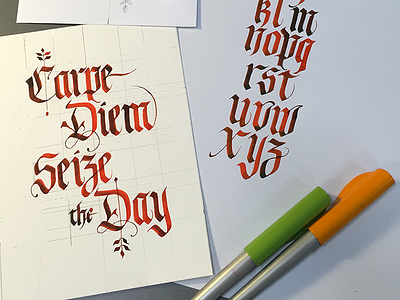 Carpe
Diem
Seize
the Day
k l m
n o p q
r s t
u v w
x y z